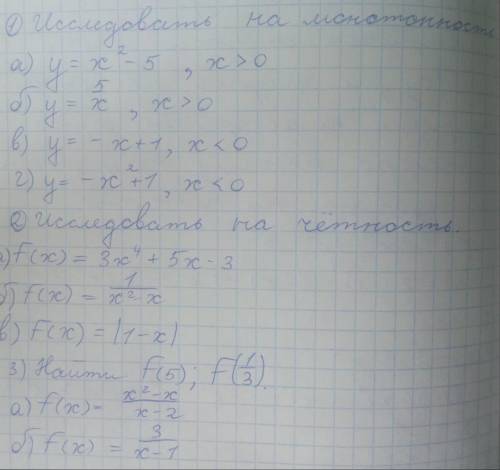 ① Исследовать на монотонность
а) y = x² - 5 , x > 0
б) y = 5/x , x > 0
в) y = - x + 1, x < 0
г) y = - x² + 1 , x < 0
② Исследовать на чётность.
а) f(x) = 3x⁴ + 5x - 3
б) f(x) = 1/(x² - x)
в) f(x) = |1 - x|
3) Найти f(5); f(1/3).
а) f(x) = (x² - x)/(x - 2)
б) f(x) = 3/(x - 1)